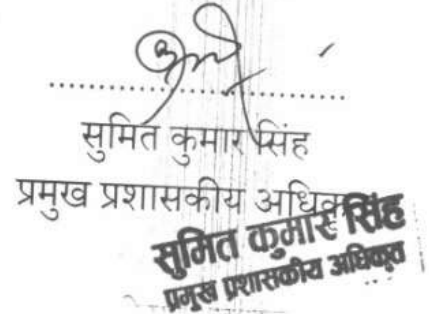 सुमित कुमार सिंह
प्रमुख प्रशासकीय अधिकृत
सुमित कुमार सिंह
प्रमुख प्रशासकीय अधिकृत